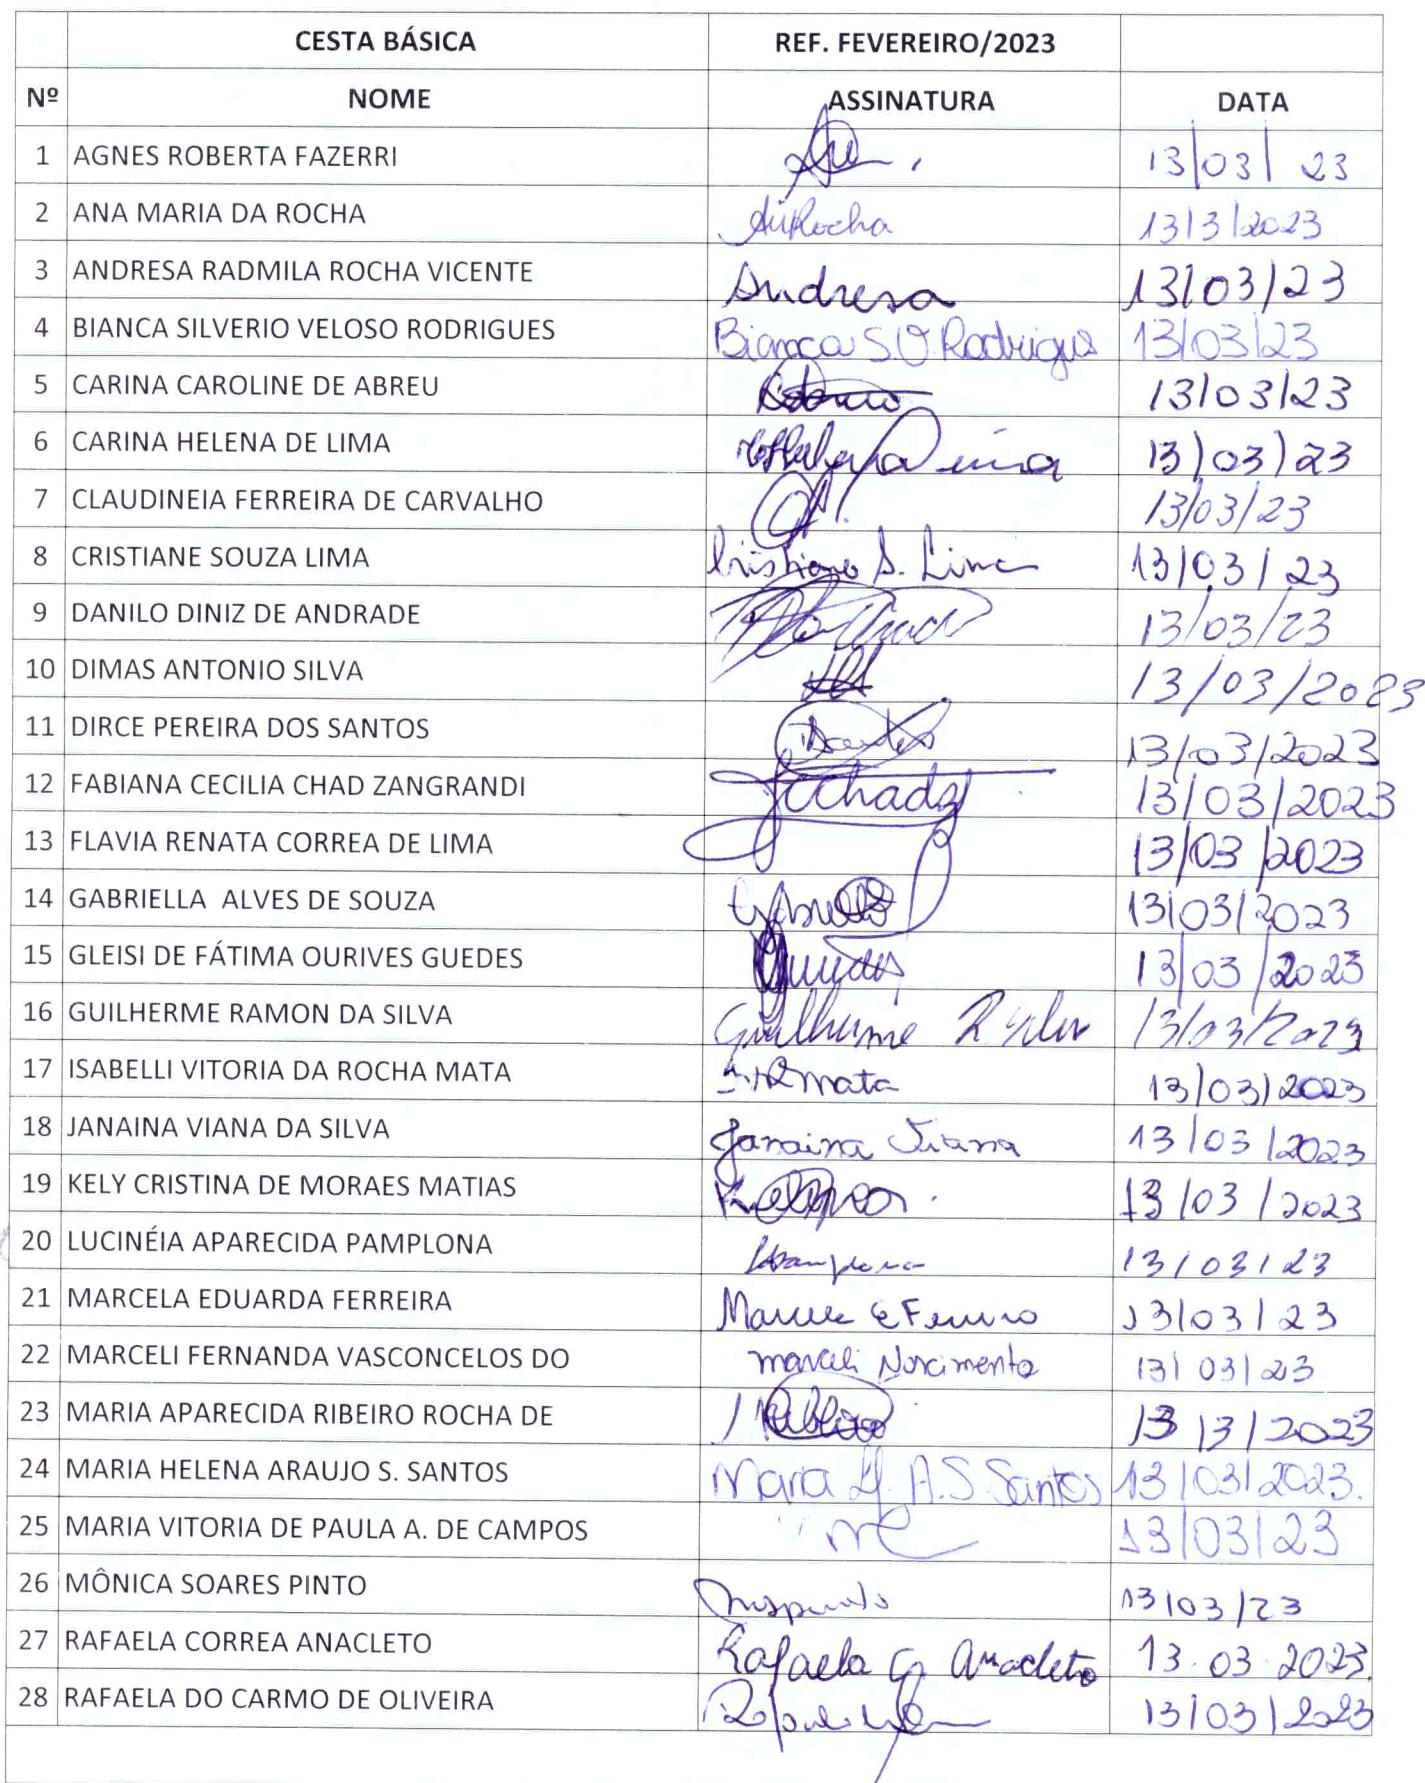 CESTA BÁSICA REF. FEVEREIRO/2023
Nº NOME ASSINATURA DATA
1 AGNES ROBERTA FAZERRI 13/03/ 23
2 ANA MARIA DA ROCHA AMRocha 13/3/2023
3 ANDRESA RADMILA ROCHA VICENTE Andresa 13/03/23
4 BIANCA SILVERIO VELOSO RODRIGUES Bianca S V. Rodrigues 13/03/23
5 CARINA CAROLINE DE ABREU 13/03/23
6 CARINA HELENA DE LIMA 13/03/23
7 CLAUDINEIA FERREIRA DE CARVALHO 13/03/23
8 CRISTIANE SOUZA LIMA Cristiane S. Lima 13/03/23
9 DANILO DINIZ DE ANDRADE 13/03/23
10 DIMAS ANTONIO SILVA 13/03/2023
11 DIRCE PEREIRA DOS SANTOS 13/03/2023
12 FABIANA CECILIA CHAD ZANGRANDI 13/03/2023
13 FLAVIA RENATA CORREA DE LIMA 13/03/2023
14 GABRIELLA ALVES DE SOUZA 13/03/2023
15 GLEISI DE FÁTIMA OURIVES GUEDES 13/03/2023
16 GUILHERME RAMON DA SILVA Guilherme 13/03/2023
17 ISABELLI VITORIA DA ROCHA MATA 13/03/2023
18 JANAINA VIANA DA SILVA Janaina Viana 13/03/2023
19 KELY CRISTINA DE MORAES MATIAS 13/03/2023
20 LUCINÉIA APARECIDA PAMPLONA 13/03/23
21 MARCELA EDUARDA FERREIRA 13/03/23
22 MARCELI FERNANDA VASCONCELOS DO marceli Nascimento 13/03/23
23 MARIA APARECIDA RIBEIRO ROCHA DE 13/3/2023
24 MARIA HELENA ARAUJO S. SANTOS Maria H. A.S. Santos 13/03/2023.
25 MARIA VITORIA DE PAULA A. DE CAMPOS 13/03/23
26 MÔNICA SOARES PINTO 13/03/23
27 RAFAELA CORREA ANACLETO Rafaela C Anacleto 13.03.2023.
28 RAFAELA DO CARMO DE OLIVEIRA 13/03/2023